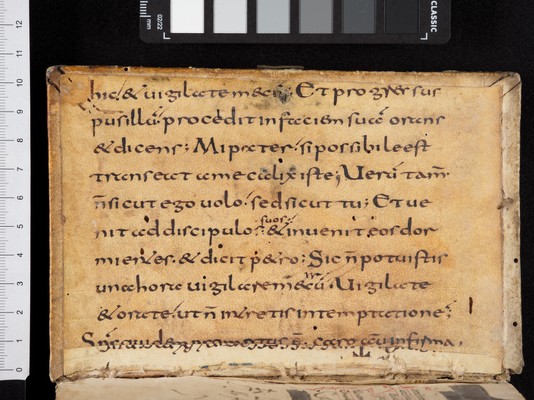 hic & uigilate mecū; Et progressus
pusillū procedit in faciem suā orans
& dicens; Mi pater si possibile est
transeat a me calix iste; Uerū tam̄
n̄ sicut ego uolo. sed sicut tu; Et ue
nit ad discipulos suos & inuenit eos dor
mientes. & dicit p&ro; Sic n̄ potuistis
una hora uigilare mecū; Uigilate
& orate. ut n̄ intretis in temptatione;
infirma.